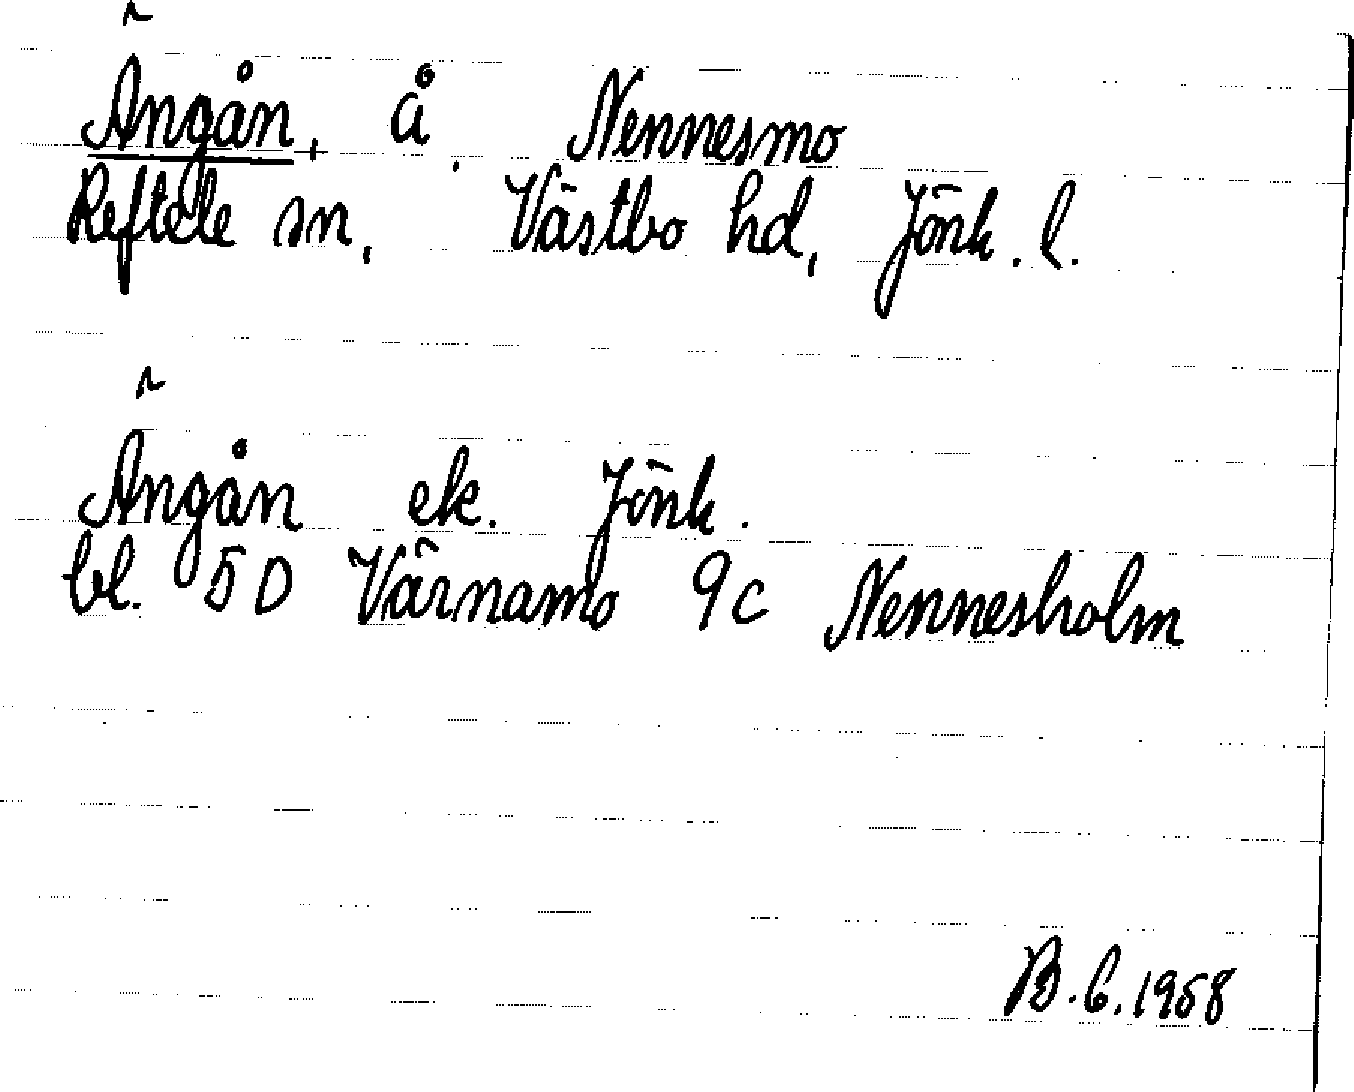 Ängån, å. Nennesmo
Reftele sn, Västbo hd, Jönk. l.
Ängån ek. Jönk.
bl. 5 D Värnamo 9 c Nennesholm
B. G. 1958